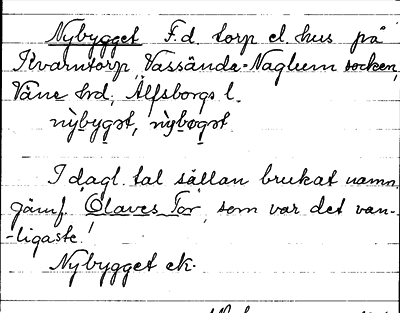 Nybygget F.d. torp el. hus på
Kvarntorp, Vassända-Naglum socken,
Väne hrd, Älfsborgs l.
nỳbygət, nỳbøgət.
I dagl. tal sällan brukat namn,
jämf. Olaves Tor, som var det van-
-ligaste!
Nybygget ek.